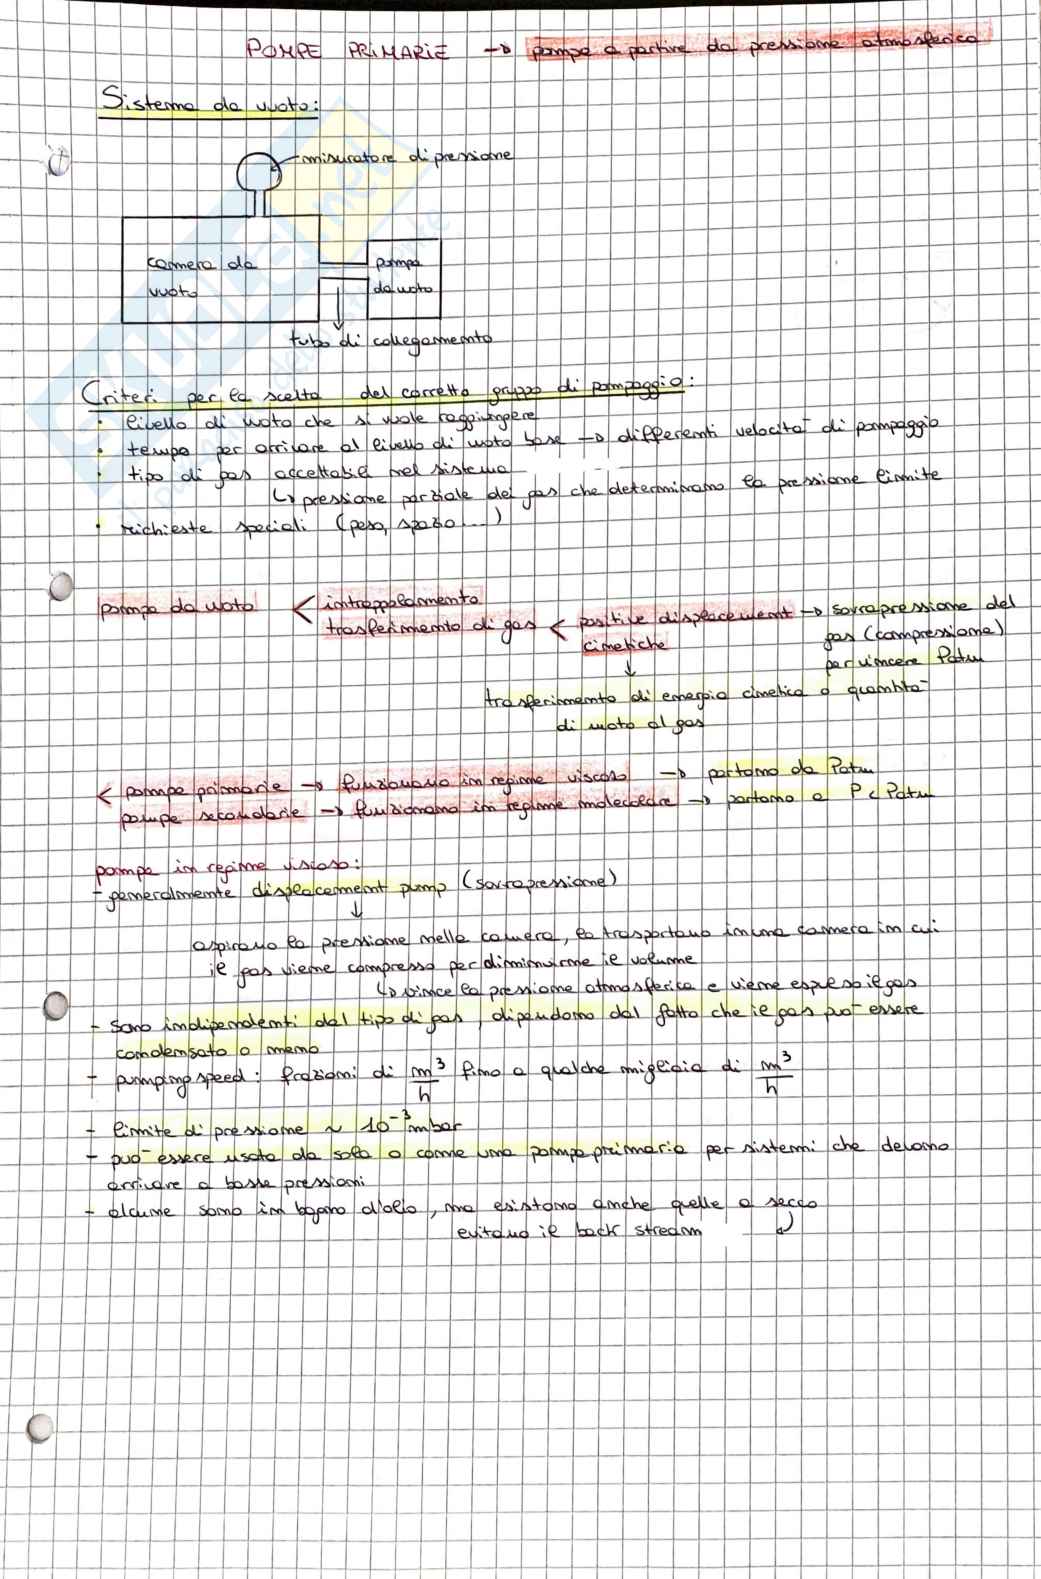 POMPE PRIMARIE → pompe a partire da pressione atmosferica
Sistema da vuoto:
misuratore di pressione
camera da vuoto
pompa da vuoto
tubo di collegamento
Criteri per la scelta del corretto gruppo di pompaggio:
• livello di vuoto che si vuole raggiungere
• tempo per arrivare al livello di vuoto base → differenti velocità di pompaggio
• tipo di gas accettabile nel sistema
↳ pressione parziale dei gas che determinano la pressione limite
• richieste speciali (peso, spazio....)
pompa da vuoto < intrappolamento
trasferimento di gas < positive displacement → sovrapressione del
gas (compressione)
per vincere Patm
cinetiche
↓
trasferimento di energia cinetica o quantità
di moto al gas
< pompe primarie → funzionano in regime viscoso → partono da Patm
pompe secondarie → funzionano in regime molecolare → partono a P < Patm
pompe in regime viscoso:
- generalmente displacement pump (sovrapressione)
↓
aspirano la pressione nella camera, la trasportano in una camera in cui
il gas viene compresso per diminuirne il volume
↳ vince la pressione atmosferica e viene espulso il gas
- sono indipendenti dal tipo di gas, dipendono dal fatto che il gas può essere
condensato o meno
- pumping speed: frazioni di m³/h fino a qualche migliaia di m³/h
- limite di pressione ~ 10⁻³ mbar
- può essere usata da sola o come una pompa primaria per sistemi che devono
arrivare a basse pressioni
- alcune sono in bagno d'olio, ma esistono anche quelle a secco
evitano il back stream